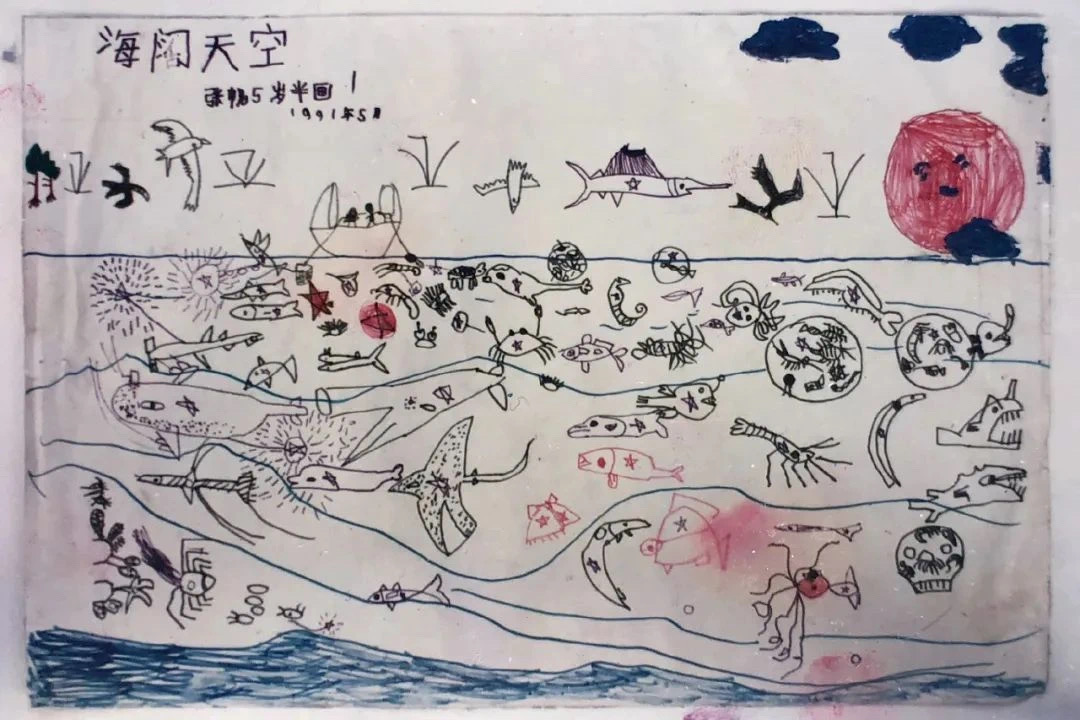 海阔天空
5岁半画
1991年5月